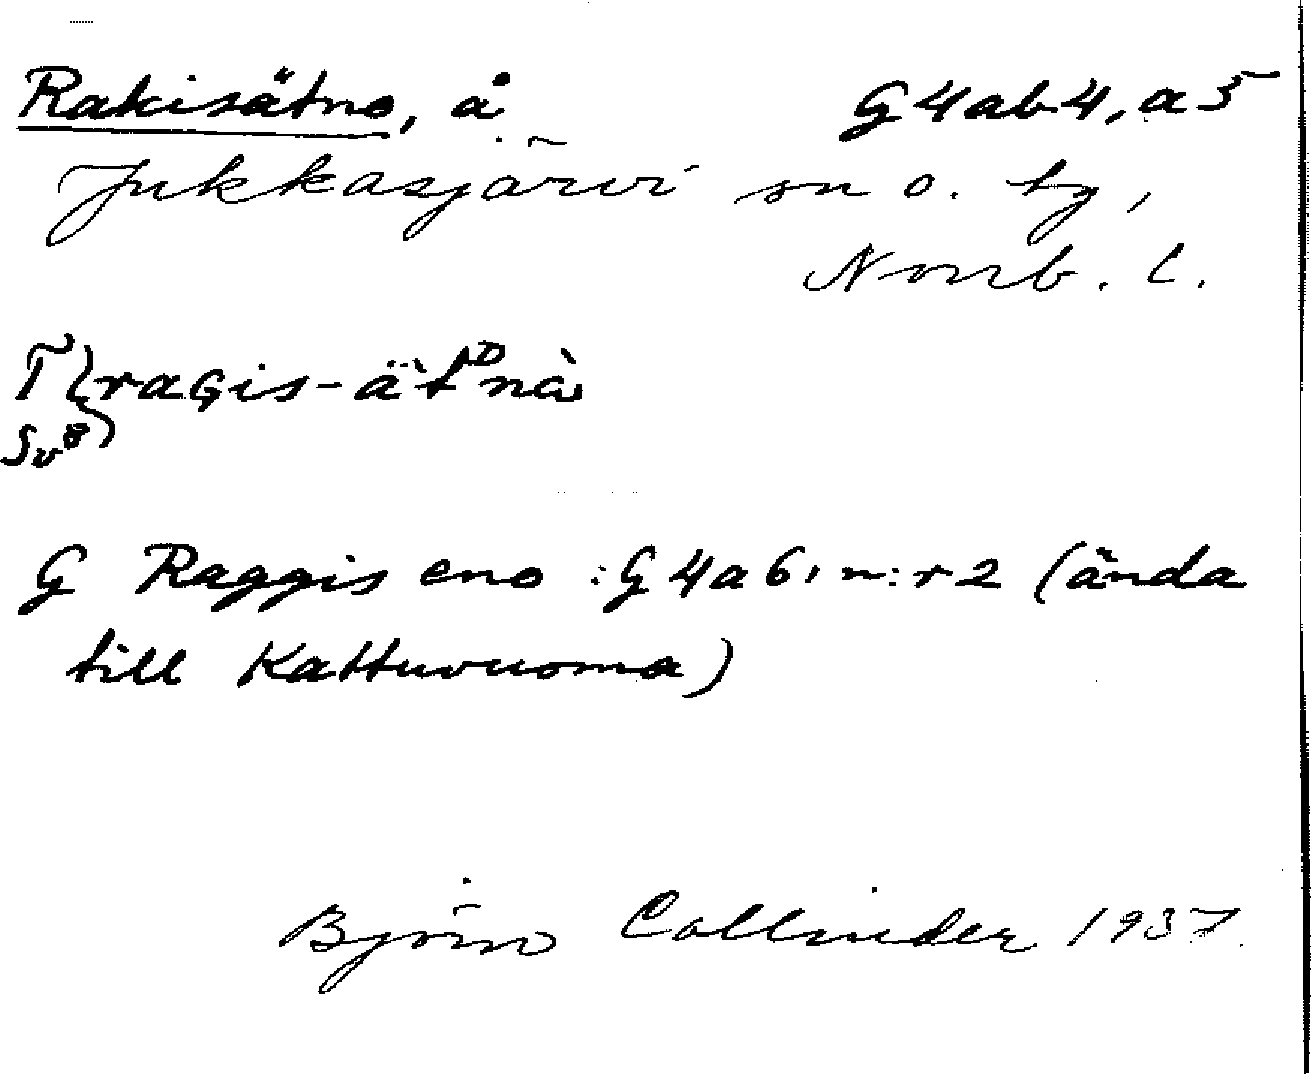 Rakisätno, å G4ab4, a5
Jukkasjärvi sn o. tg,
Norrb. l.
T (raGis-ä̀tᴰnà
Sv⁸)
G Raggis eno : G4a6, n:r 2 (ända
till Kattuvuoma)
Björn Collinder 1937.